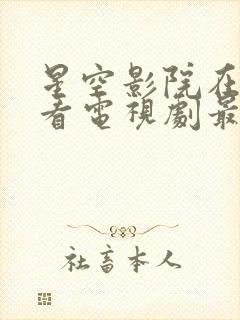 星空影院在
看電視劇最
社畜本人